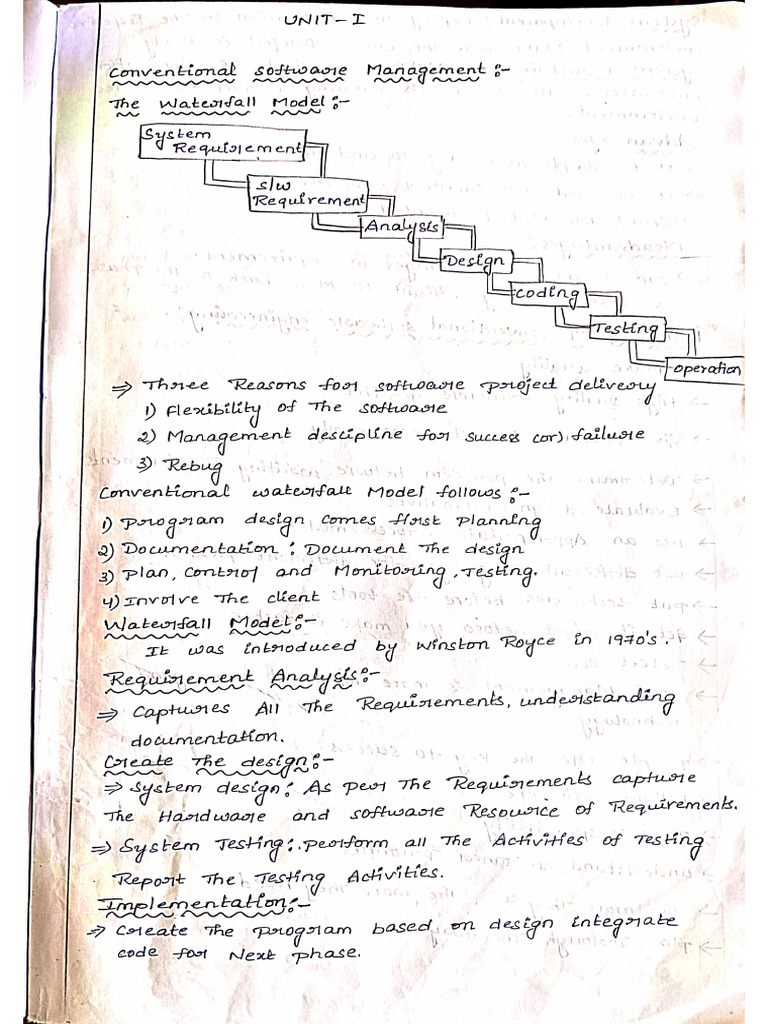 UNIT-I
Conventional software Management:-
The Waterfall Model:-
System
Requirement
S/w
Requirement
Analysis
Design
coding
Testing
operation
⇒ Three Reasons for software project delivery
1) Flexibility of The software
2) Management descipline for success (or) failure
3) Rebug
Conventional waterfall Model follows:-
1) program design comes first planning
2) Documentation: Document The design
3) plan, control and Monitoring, Testing.
4) Involve The client
Waterfall Model:-
It was introduced by Winston Royce in 1970's.
Requirement Analysis:-
⇒ Captures All The Requirements, understanding
documentation.
Create The design:-
⇒ System design: As per The Requirements capture
The Hardware and software Resource of Requirements.
⇒ System Testing: perform all The Activities of Testing
Report The Testing Activities.
Implementation:-
⇒ Create The program based on design integrate
code for Next phase.